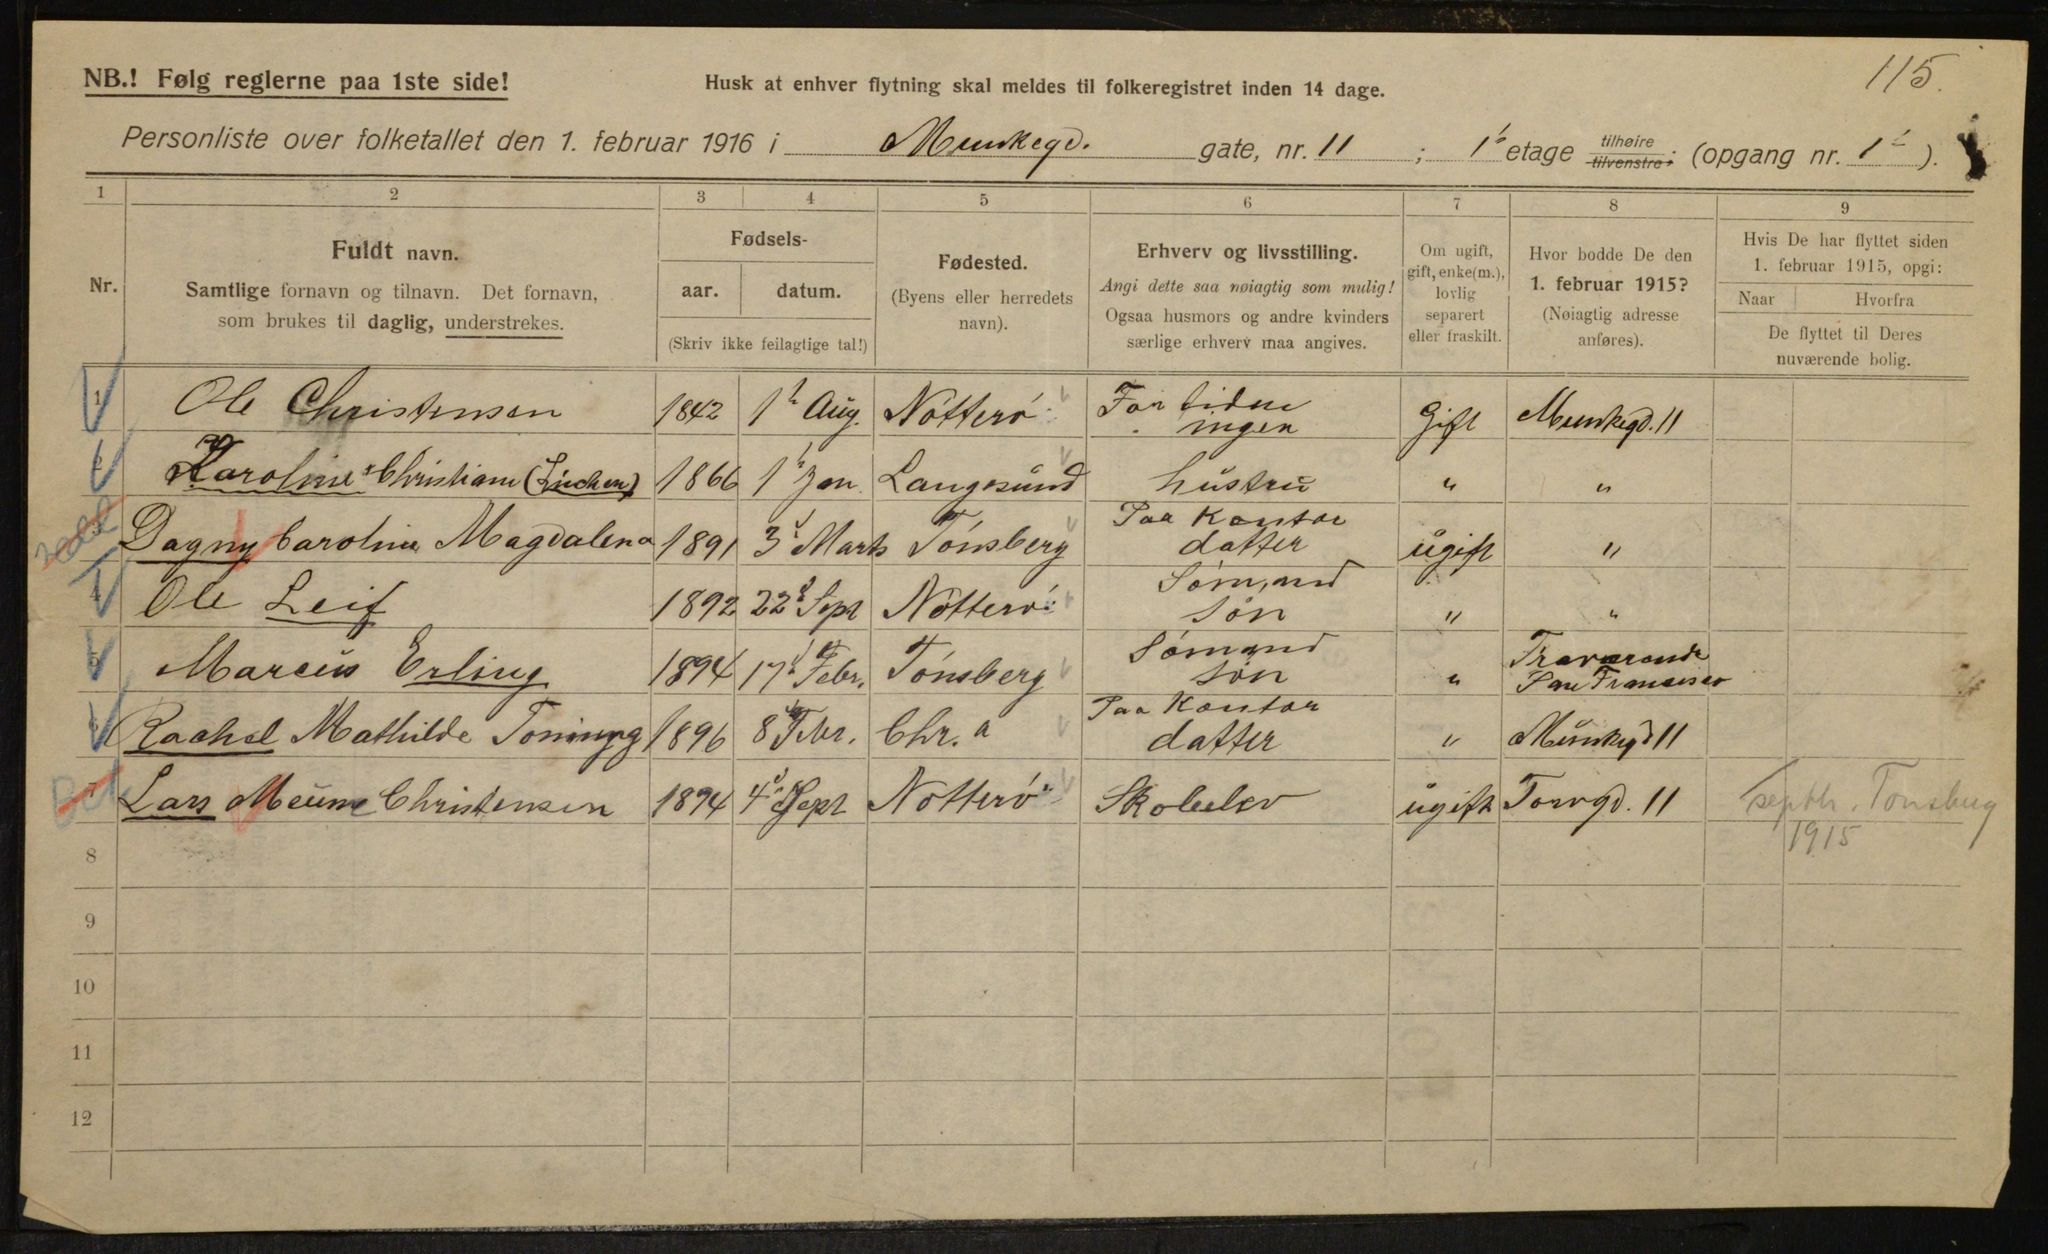 115.
NB.! Følg reglerne paa 1ste side!
Husk at enhver flytning skal meldes til folkeregistret inden 14 dage.
Personliste over folketallet den 1. februar 1916 i Munkegd. gate, nr. 11 ; 1 etage tilhøire tilvenstre; (opgang nr. 1 ).
1 2 3 4 5 6 7 8 9
Nr.
Fuldt navn.
Samtlige fornavn og tilnavn. Det fornavn,
som brukes til daglig, understrekes.
Fødsels-
aar. datum.
(Skriv ikke feilagtige tal!)
Fødested.
(Byens eller herredets
navn).
Erhverv og livsstilling.
Angi dette saa nøiagtig som mulig!
Ogsaa husmors og andre kvinders
særlige erhverv maa angives.
Om ugift,
gift, enke(m.),
lovlig
separert
eller fraskilt.
Hvor bodde De den
1. februar 1915?
(Nøiagtig adresse
anføres).
Hvis De har flyttet siden
1. februar 1915, opgi:
Naar Hvorfra
De flyttet til Deres
nuværende bolig.
1 Ole Christensen 1842 1 Aug. Nötterö For tiden ingen Gift Munkegd. 11
2 Karoline Christiane 1866 1 Jan. Langesund hustru " "
3 Dagny Caroline Magdalena 1891 3 Marts Tönsberg Paa Kontor datter ugift "
4 Ole Leif 1892 22 Sept Nötterö Sömand Sön " "
5 Marcus Erling 1894 17 Febr. Tönsberg Sömand Sön " Fraværende San Francisco
6 Rachel Mathilde 1896 8 Febr. Chr.a Paa Kontor datter " Munkegd 11
7 Lars Christensen 1894 4 Sept Nötterö Skoleelev ugift Torvgd. 11 septbr. Tönsberg
1915
8
9
10
11
12